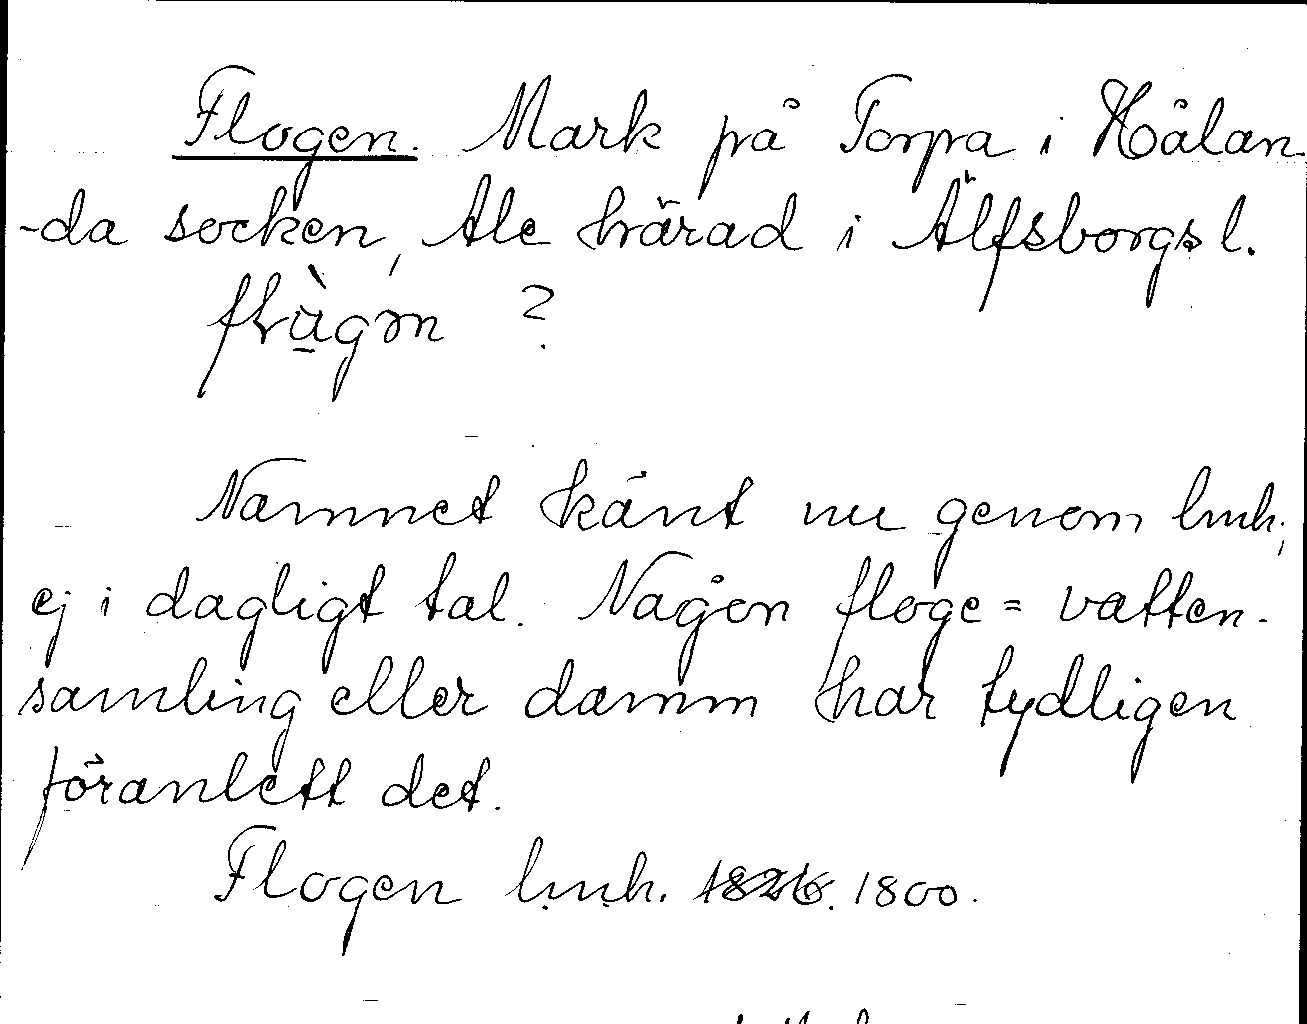 Flogen. Mark på Torpa i Hålan-
-da socken, Ale härad i Älfsborgs l.
?
Namnet känt nu genom lmh;
ej i dagligt tal. Någon floge = vatten-
samling eller damm har tydligen
föranlett det.
Flogen lmh. 1826. 1800.